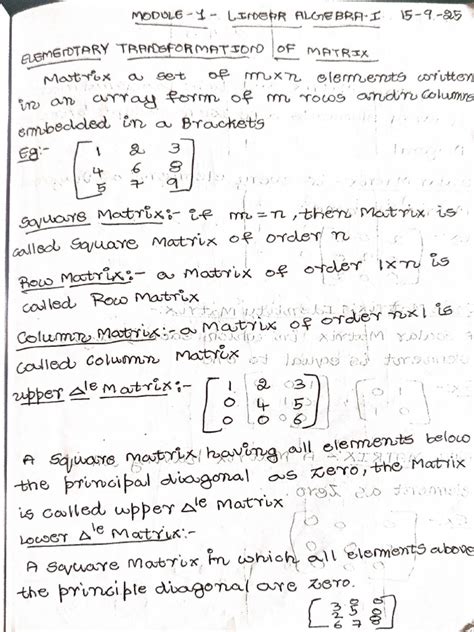 MODULE-1- LINEAR ALGEBRA-I 15-9-25
ELEMENTARY TRANSFORMATION OF MATRIX
Matrix a set of m×n elements written
in an array form of m rows and n columns
embedded in a Brackets
Eg:- [1 2 3
4 6 8
5 7 9]
Square Matrix:- if m=n, then Matrix is
called Square Matrix of order n
Row Matrix:- a Matrix of order 1×n is
called Row Matrix
Column Matrix:- a Matrix of order n×1 is
called Column Matrix
upper Δle Matrix:- [1 2 3
0 4 5
0 0 6]
A Square Matrix having all elements below
the principal diagonal as zero, the Matrix
is called upper Δle Matrix
Lower Δle Matrix:-
A Square Matrix in which all elements above
the principle diagonal are zero.
[3 0 0
2 5 0
6 7 8]